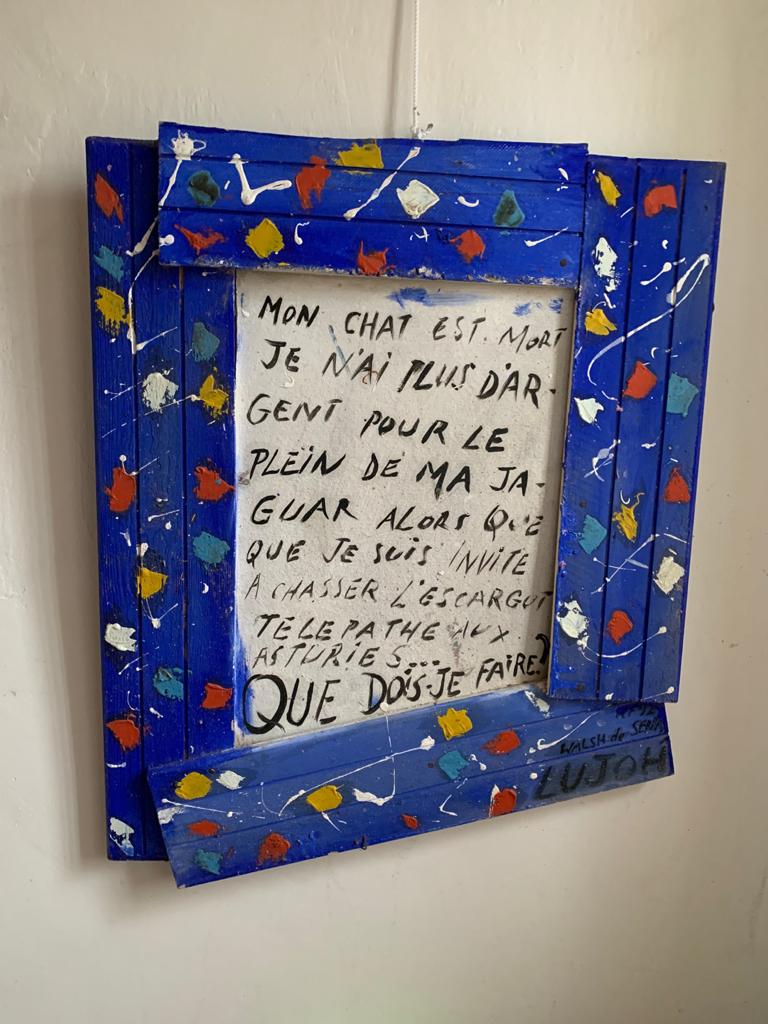 MON CHAT EST. MORT
JE N'AI PLUS D'AR-
GENT POUR LE
PLEIN DE MA JA-
GUAR ALORS QUE
QUE JE SUIS INVITE
A CHASSER L'ESCARGOT
TELEPATHE AUX
ASTURIES...
QUE DOIS-JE FAIRE?
WALSH de
LUJOH